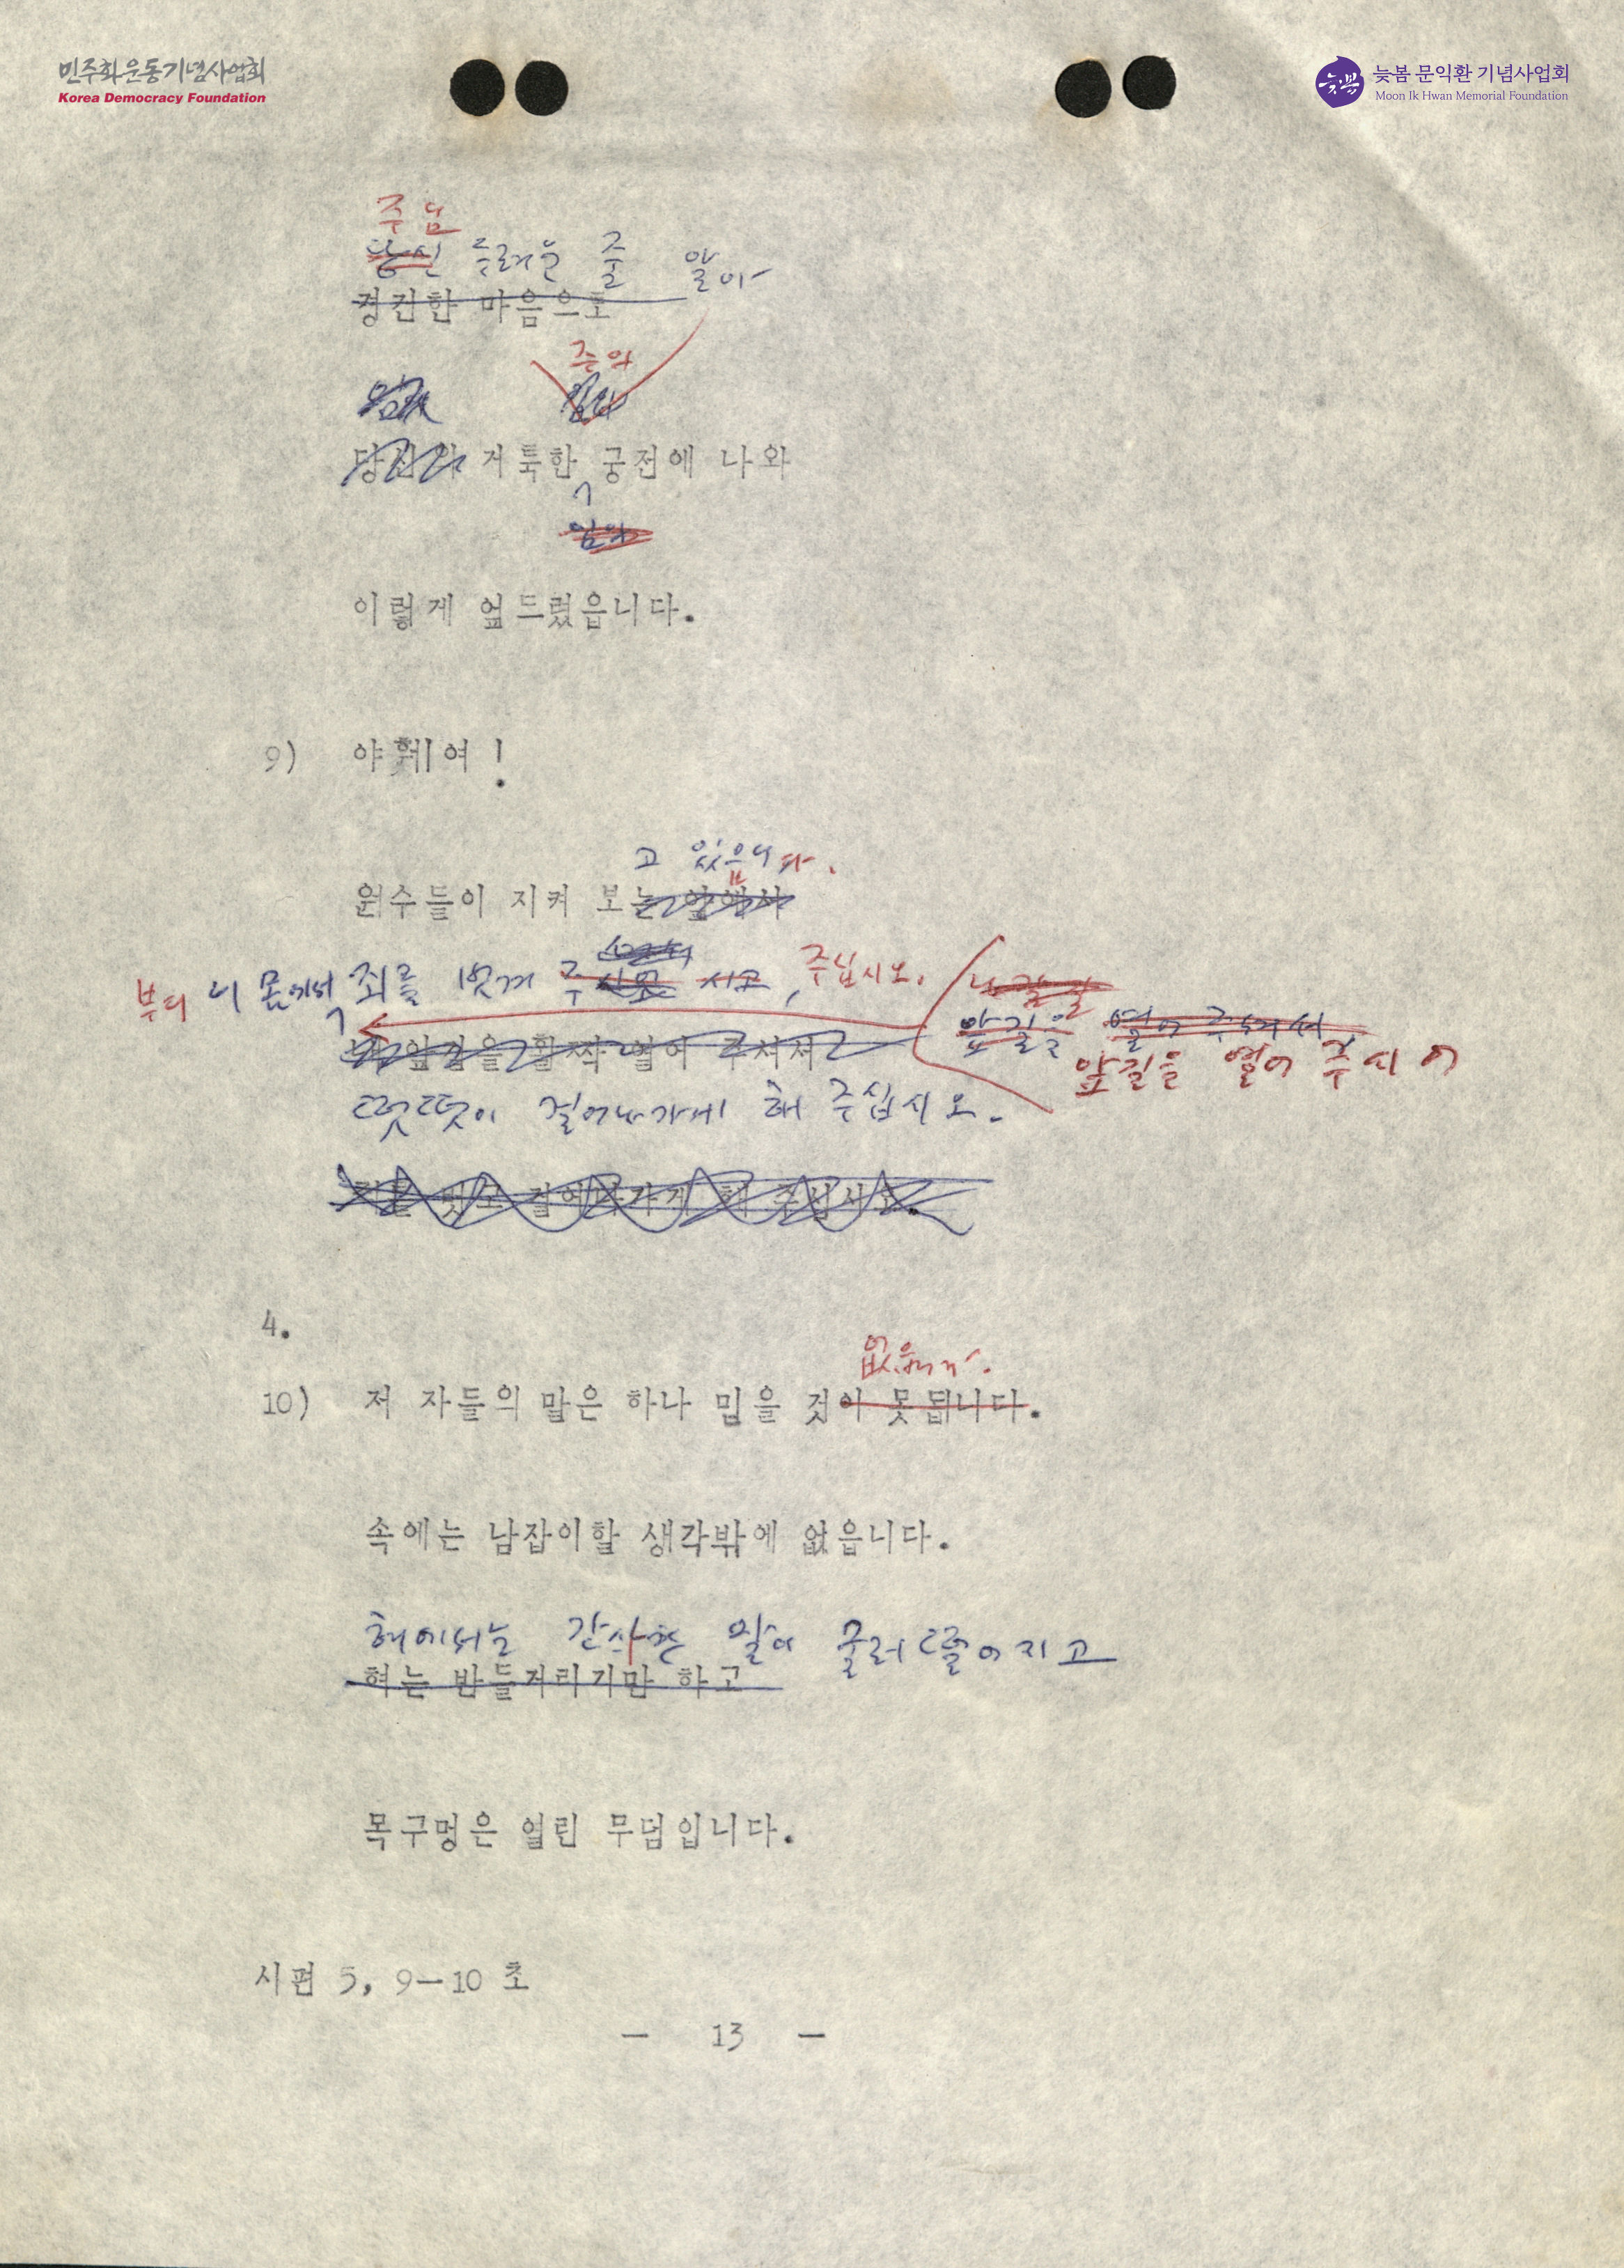 민주화운동기념사업회
Korea Democracy Foundation
늦봄 문익환 기념사업회
Moon Ik Hwan Memorial Foundation
주님
당신 두려운 줄 알아
경건한 마음으로
주의
당신의 거룩한 궁전에 나와
임의
이렇게 엎드렸읍니다.
9) 야훼여!
고 있읍니다.
원수들이 지켜 보는 앞에서
부디 내 몸에서 죄를 벗겨 주시고, 주십시오.
앞길을 열어 주셔서
내 앞길을 활짝 열어 주셔서
앞길을 열어 주시어
떳떳이 걸어나가게 해 주십시오.
죄를 벗고 걸어나가게 해 주십시오.
4.
없읍니다.
10) 저 자들의 말은 하나 믿을 것이 못됩니다.
속에는 남잡이할 생각밖에 없읍니다.
혀에서는 간사한 말이 굴러떨어지고
혀는 반들거리기만 하고
목구멍은 열린 무덤입니다.
시편 5, 9—10 초
— 13 —